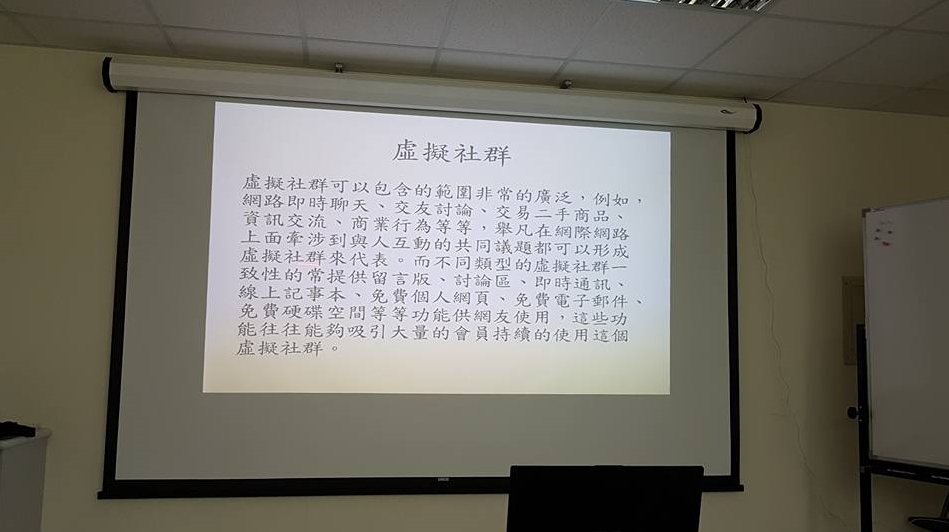 虛擬社群
虛擬社群可以包含的範圍非常的廣泛，例如，
網路即時聊天、交友討論、交易二手商品、
資訊交流、商業行為等等，舉凡在網際網路
上面牽涉到與人互動的共同議題都可以形成
虛擬社群來代表。而不同類型的虛擬社群一
致性的常提供留言版、討論區、即時通訊、
線上記事本、免費個人網頁、免費電子郵件、
免費硬碟空間等等功能供網友使用，這些功
能往往能夠吸引大量的會員持續的使用這個
虛擬社群。